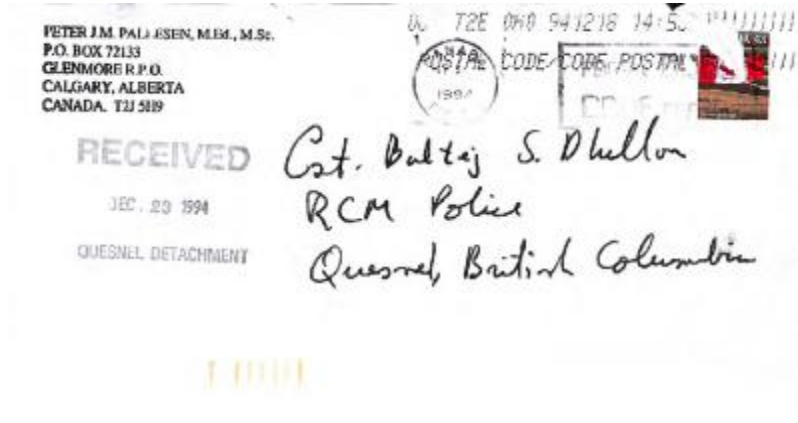 PETER J.M. PALLESEN, M.Ed., M.Sc.
P.O. BOX 72133
GLENMORE R.P.O.
CALGARY, ALBERTA
CANADA. T2J 5H9
T2E 0K0 941218 14:5
POSTAL CODE/CODE POSTAL
CANADA
1994
RECEIVED
DEC. 23 1994
QUESNEL DETACHMENT
Cst. Baltej S. Dhillon
RCM Police
Quesnel, British Columbia